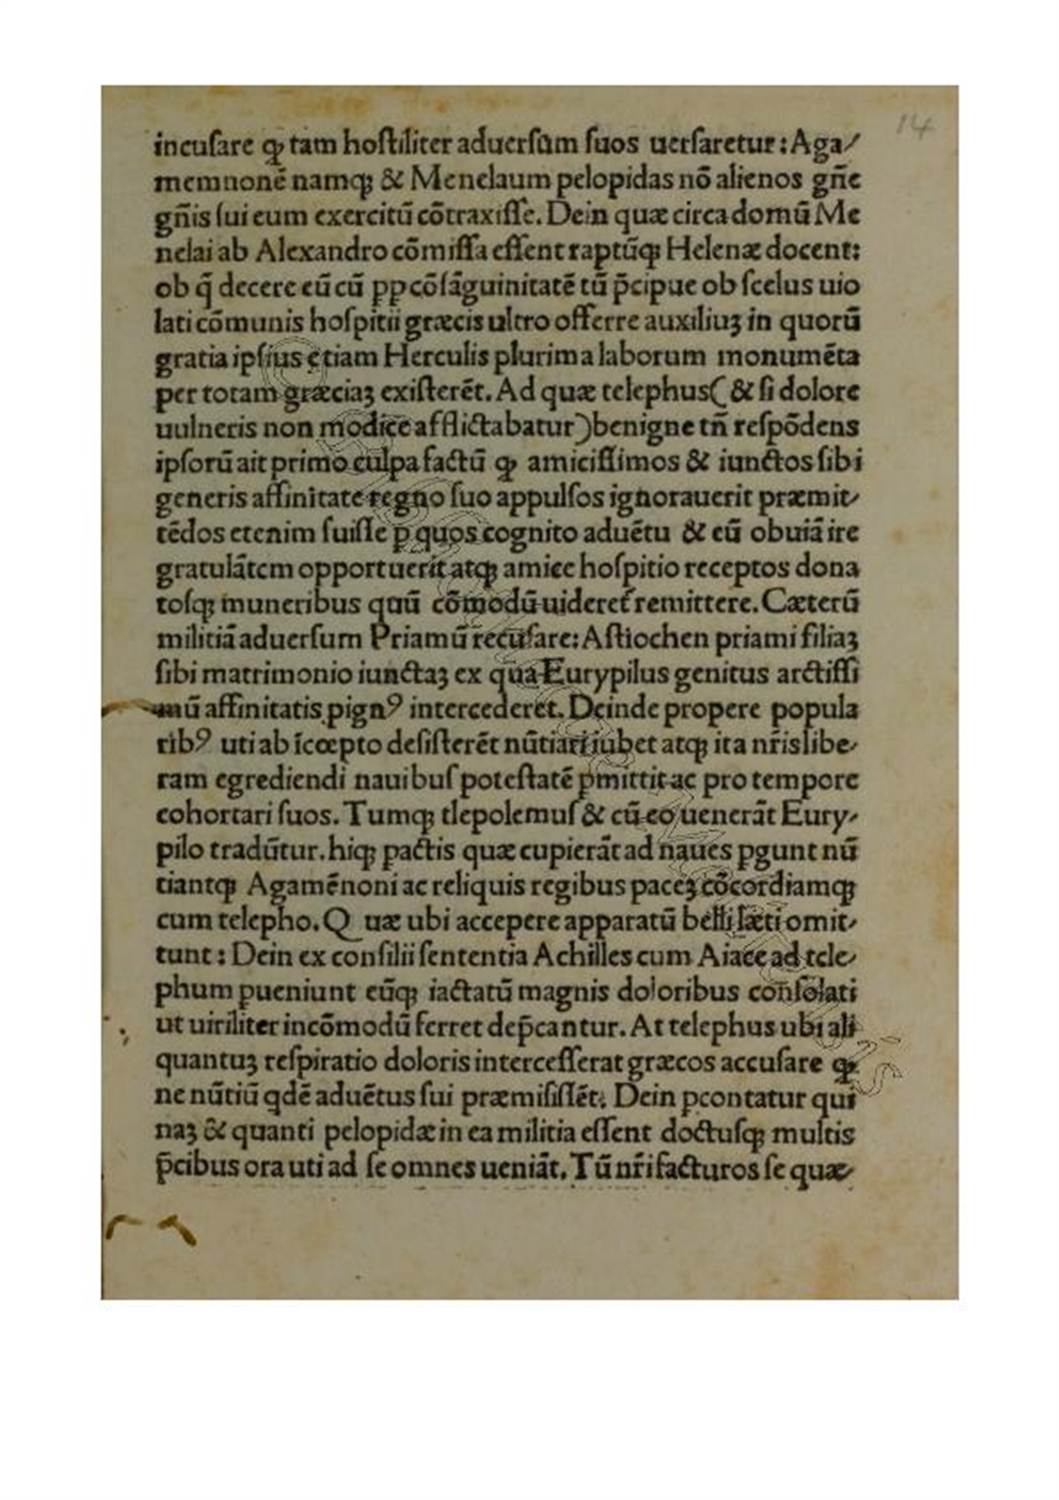 14
incuſare ꝙ tam hoſtiliter aduerſũm ſuos uerſaretur: Aga⸗
memnonẽ namqꝫ & Menelaum pelopidas nõ alienos gñe
gñis ſui eum exercitũ cõtraxiſſe. Dein quæ circa domũ Me
nelai ab Alexandro cõmiſſa eſſent raptũqꝫ Helenæ docent:
ob q̃ decere eũ cũ ꝓꝑ cõſãguinitatẽ tũ p̃cipue ob ſcelus uio
lati cõmunis hoſpitii græcis ultro offerre auxiliuꝫ in quorũ
gratia ipſius etiam Herculis plurima laborum monumẽta
per totam græciaꝫ exiſterẽt. Ad quæ telephus( & ſi dolore
uulneris non modice afflictabatur)benigne tñ reſpõdens
ipſorũ ait primo culpa factũ ꝙ amiciſſimos & iunctos ſibi
generis affinitate regno ſuo appulſos ignorauerit præmit⸗
tẽdos etenim fuiſſe ꝑ quos cognito aduẽtu & eũ obuiã ire
gratulãtem opportuerit atqꝫ amice hoſpitio receptos dona
toſqꝫ muneribus quũ cõmodũ uideret̃ remittere. Cæterũ
militiã aduerſum Priamũ recuſare: Aſtiochen priami filiaꝫ
ſibi matrimonio iunctaꝫ ex qua Eurypilus genitus arctiſſi
mũ affinitatis pignꝰ intercederet. Deinde propere popula
ribꝰ uti ab ĩcœpto deſiſterẽt nũtiari iubet atqꝫ ita nr̃is libe⸗
ram egrediendi nauibuſ poteſtatẽ ꝑmittit ac pro tempore
cohortari ſuos. Tumqꝫ tlepolemuſ & cũ eo uenerãt Eury⸗
pilo tradũtur. hiqꝫ pactis quæ cupierãt ad naues ꝑgunt nũ
tiantqꝫ Agamẽnoni ac reliquis regibus paceꝫ cõcordiamqꝫ
cum telepho. Q uæ ubi accepere apparatũ belli læti omit⸗
tunt: Dein ex conſilii ſententia Achilles cum Aiace ad tele⸗
phum ꝑueniunt eũqꝫ iactatũ magnis doloribus conſolati
ut uiriliter incõmodũ ferret dep̃cantur. At telephus ubi ali
quantuꝫ reſpiratio doloris interceſſerat græcos accuſare ꝙ
ne nũtiũ qdẽ aduẽtus ſui præmiſiſſẽt. Dein ꝑcontatur qui
naꝫ & quanti pelopidæ in ea militia eſſent doctuſqꝫ multis
p̃cibus ora uti ad ſe omnes ueniãt. Tũ nr̃i facturos ſe quæ⸗